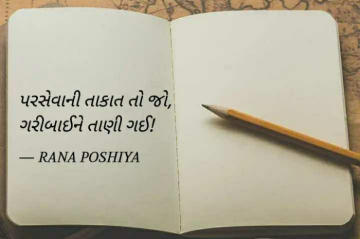 પરસેવાની તાકાત તો જો,
ગરીબાઈને તાણી ગઈ!
— RANA POSHIYA